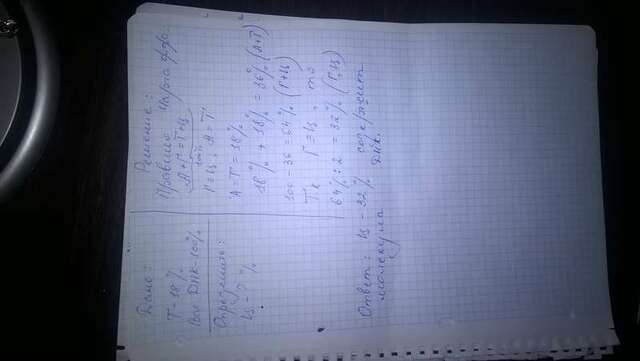 Дано:
Т-18%
Вся ДНК-100%
Определить:
Ц-?%
Решение:
Правило Чаргаффа.
А+Г=Т+Ц
100%
Г=Ц; А=Т
А-Т=18%
18%+18%=36%(А+Т)
100-36=64%(Г+Ц)
Тк Г=Ц, то
64%:2=32%(Г,Ц)
Ответ: Ц-32% содержит
молекула ДНК.